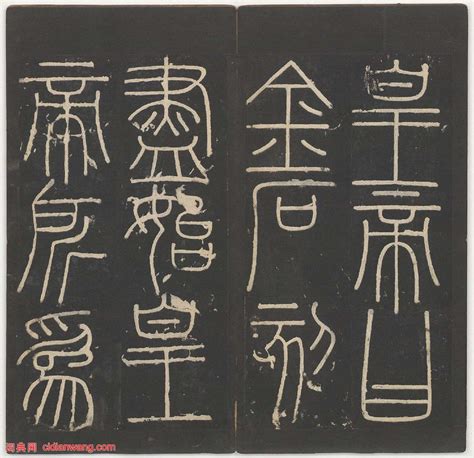 皇帝曰
金石刻
盡始皇
帝所爲
词典网 cidianwang.com